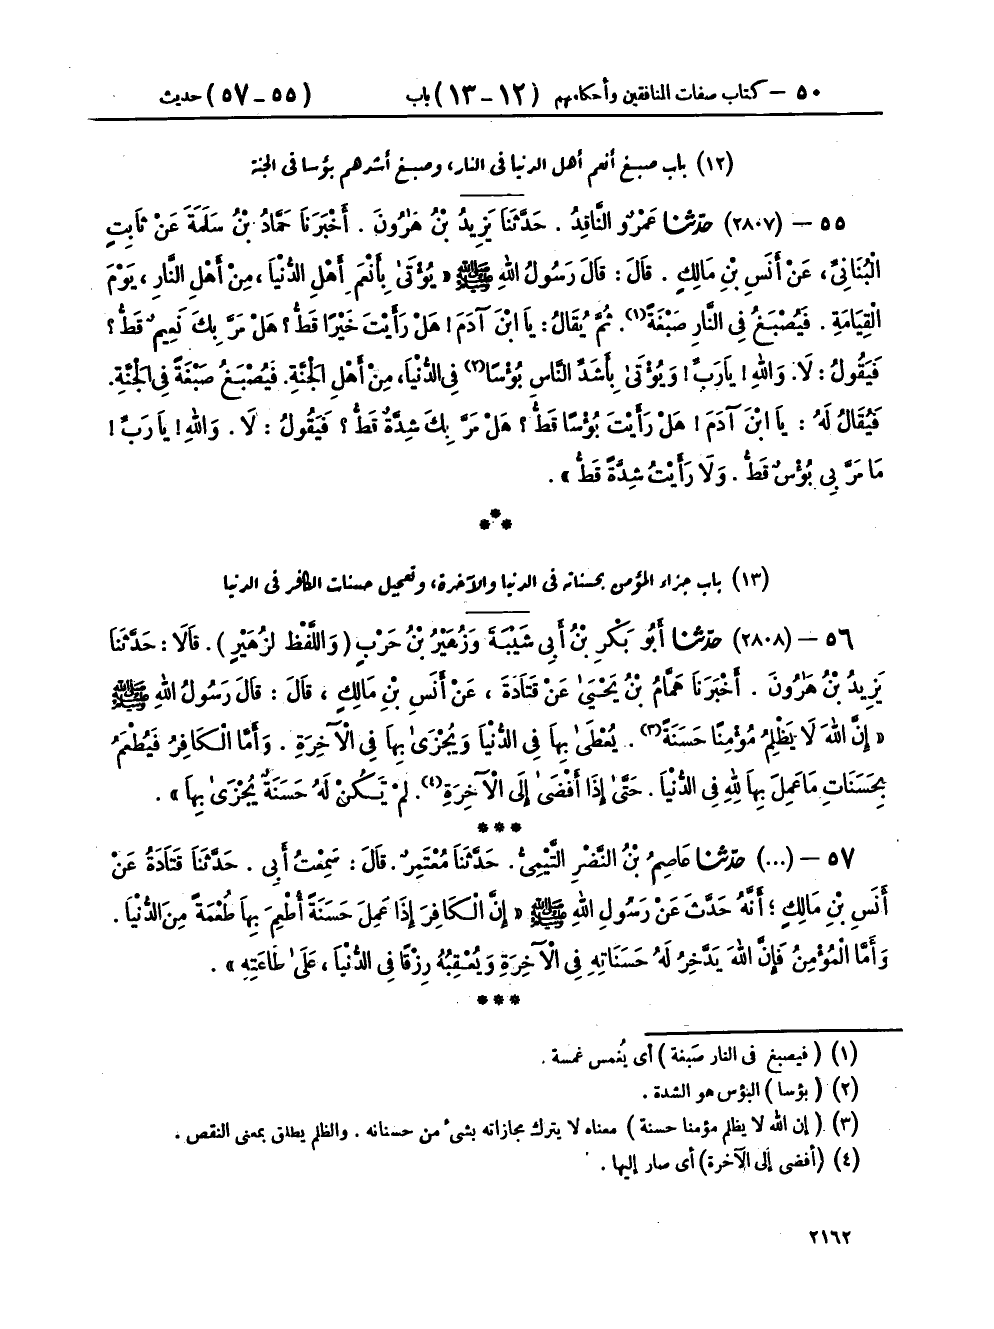 ٥٠ – كتاب صفات المنافقين وأحكامهم (١٢-١٣) باب (٥٥-٥٧) حديث
(١٢) باب صبغ أنعم أهل الدنيا فى النار، وصبغ أشدهم بؤسا فى الجنة
٥٥ – (٢٨٠٧) حَدَّثَنَا عَمْرٌو النَّاقِدُ . حَدَّثَنَا يَزِيدُ بْنُ هَٰرُونَ . أَخْبَرَنَا حَمَّادُ بْنُ سَلَمَةَ عَنْ ثَابِتٍ
الْبُنَانِىِّ، عَنْ أَنَسِ بْنِ مَالِكٍ . قَالَ : قَالَ رَسُولُ اللهِ ﷺ « يُؤْتَىٰ بِأَنْعَمِ أَهْلِ الدُّنْيَا ، مِنْ أَهْلِ النَّارِ ، يَوْمَ
الْقِيَامَةِ . فَيُصْبَغُ فِى النَّارِ صَبْغَةً(١). ثُمَّ يُقَالُ : يَا ابْنَ آدَمَ ! هَلْ رَأَيْتَ خَيْرًا قَطُّ ؟ هَلْ مَرَّ بِكَ نَعِيمٌ قَطُّ ؟
فَيَقُولُ : لَا. وَاللهِ ! يَارَبِّ ! وَيُؤْتَىٰ بِأَشَدِّ النَّاسِ بُؤْسًا(٢) فِى الدُّنْيَا، مِنْ أَهْلِ الْجَنَّةِ. فَيُصْبَغُ صَبْغَةً فِى الْجَنَّةِ.
فَيُقَالُ لَهُ : يَا ابْنَ آدَمَ ! هَلْ رَأَيْتَ بُؤْسًا قَطُّ ؟ هَلْ مَرَّ بِكَ شِدَّةٌ قَطُّ ؟ فَيَقُولُ : لَا . وَاللهِ ! يَا رَبِّ !
مَا مَرَّ بِى بُؤْسٌ قَطُّ . وَلَا رَأَيْتُ شِدَّةً قَطُّ » .
***
(١٣) باب جزاء المؤمن بحسناته فى الدنيا والآخرة، وتعجيل حسنات الكافر فى الدنيا
٥٦ – (٢٨٠٨) حَدَّثَنَا أَبُو بَكْرِ بْنُ أَبِى شَيْبَةَ وَزُهَيْرُ بْنُ حَرْبٍ ( وَاللَّفْظُ لِزُهَيْرٍ ) . قَالَا : حَدَّثَنَا
يَزِيدُ بْنُ هَٰرُونَ . أَخْبَرَنَا هَمَّامُ بْنُ يَحْيَىٰ عَنْ قَتَادَةَ ، عَنْ أَنَسِ بْنِ مَالِكٍ ، قَالَ : قَالَ رَسُولُ اللهِ ﷺ
« إِنَّ اللهَ لَا يَظْلِمُ مُؤْمِنًا حَسَنَةً(٣) . يُعْطَىٰ بِهَا فِى الدُّنْيَا وَيُجْزَىٰ بِهَا فِى الْآخِرَةِ . وَأَمَّا الْكَافِرُ فَيُطْعَمُ
بِحَسَنَاتِ مَا عَمِلَ بِهَا لِلهِ فِى الدُّنْيَا . حَتَّىٰ إِذَا أَفْضَىٰ إِلَى الْآخِرَةِ(٤). لَمْ تَكُنْ لَهُ حَسَنَةٌ يُجْزَىٰ بِهَا » .
***
٥٧ – (...) حَدَّثَنَا عَاصِمُ بْنُ النَّضْرِ التَّيْمِىُّ . حَدَّثَنَا مُعْتَمِرٌ . قَالَ : سَمِعْتُ أَبِى . حَدَّثَنَا قَتَادَةُ عَنْ
أَنَسِ بْنِ مَالِكٍ ؛ أَنَّهُ حَدَّثَ عَنْ رَسُولِ اللهِ ﷺ « إِنَّ الْكَافِرَ إِذَا عَمِلَ حَسَنَةً أُطْعِمَ بِهَا طُعْمَةً مِنَ الدُّنْيَا .
وَأَمَّا الْمُؤْمِنُ فَإِنَّ اللهَ يَدَّخِرُ لَهُ حَسَنَاتِهِ فِى الْآخِرَةِ وَيُعْقِبُهُ رِزْقًا فِى الدُّنْيَا ، عَلَىٰ طَاعَتِهِ » .
***
(١) ( فيصبغ فى النار صَبغة ) أى يُغمس غمسة .
(٢) ( بؤسا ) البؤس هو الشدة .
(٣) ( إن الله لا يظلم مؤمنا حسنة ) معناه لا يترك مجازاته بشىء من حسناته . والظلم يطلق بمعنى النقص .
(٤) (أفضى إلى الآخرة) أى صار إليها .
٢١٦٢